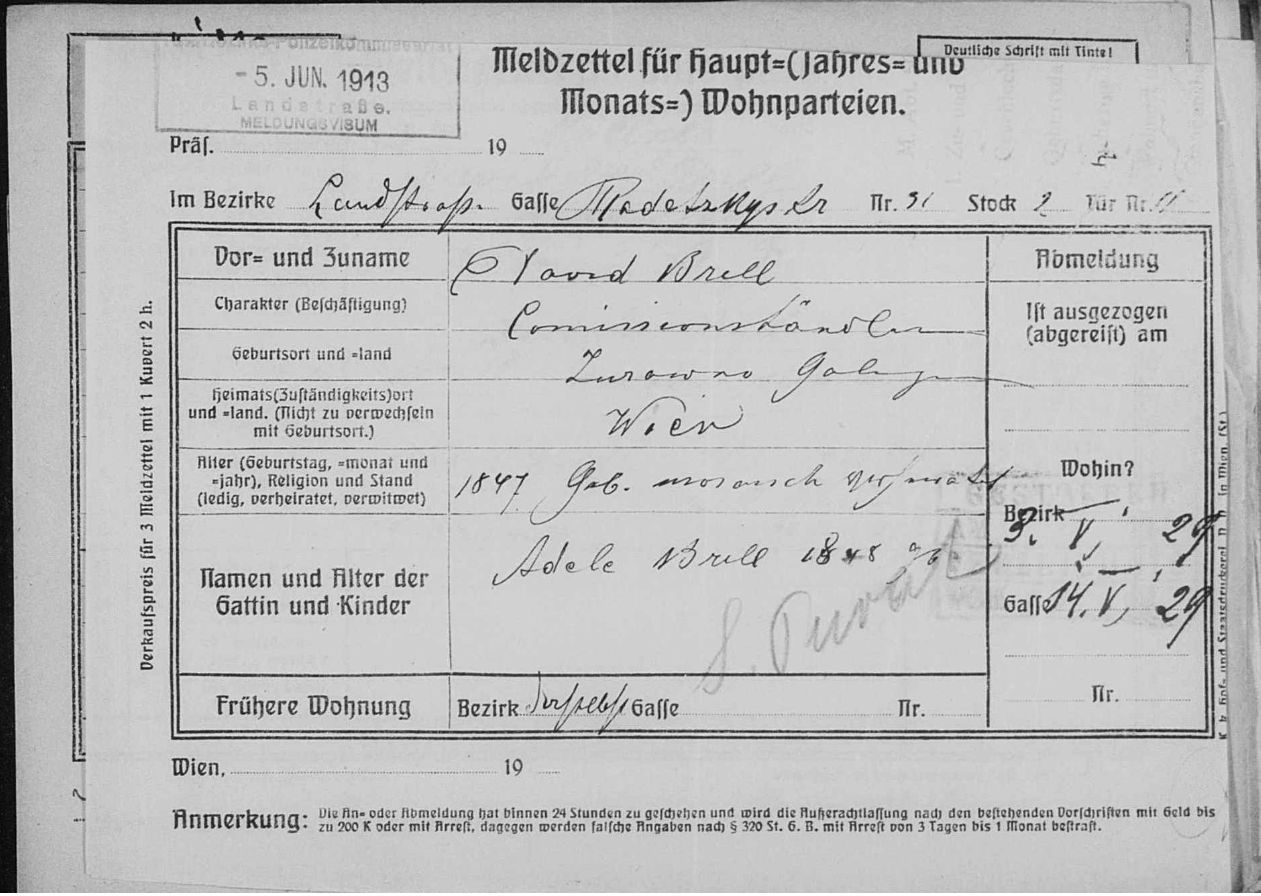 Deutliche Schrift mit Tinte!
- 5. JUN. 1913
Landstraße.
MELDUNGSVISUM
Meldzettel für Haupt=(Jahres= und
Monats=) Wohnparteien.
Präs. 19
Im Bezirke Landstraße Gasse Radetzkystr Nr. 31 Stock 2 Tür Nr. 11
Vor= und Zuname David Brill
Charakter (Beschäftigung) Comissionshändler
Geburtsort und =land Zurawno Galiz
Heimats(Zuständigkeits)ort
und =land. (Nicht zu verwechseln
mit Geburtsort.) Wien
Alter (Geburtstag, =monat und
=jahr), Religion und Stand
(ledig, verheiratet, verwitwet) 1847 Geb. mosaisch
Namen und Alter der
Gattin und Kinder Adele Brill 1848
Frühere Wohnung Bezirk Gasse Nr.
Abmeldung
Ist ausgezogen
(abgereist) am
Wohin?
Bezirk
3. V. 29
Gasse 14. V. 29
Nr.
Wien, 19
Anmerkung: Die An= oder Abmeldung hat binnen 24 Stunden zu geschehen und wird die Außerachtlassung nach den bestehenden Vorschriften mit Geld bis
zu 200 K oder mit Arrest, dagegen werden falsche Angaben nach § 320 St. G. B. mit Arrest von 3 Tagen bis 1 Monat bestraft.
Verkaufspreis für 3 Meldzettel mit 1 Kuvert 2 h.